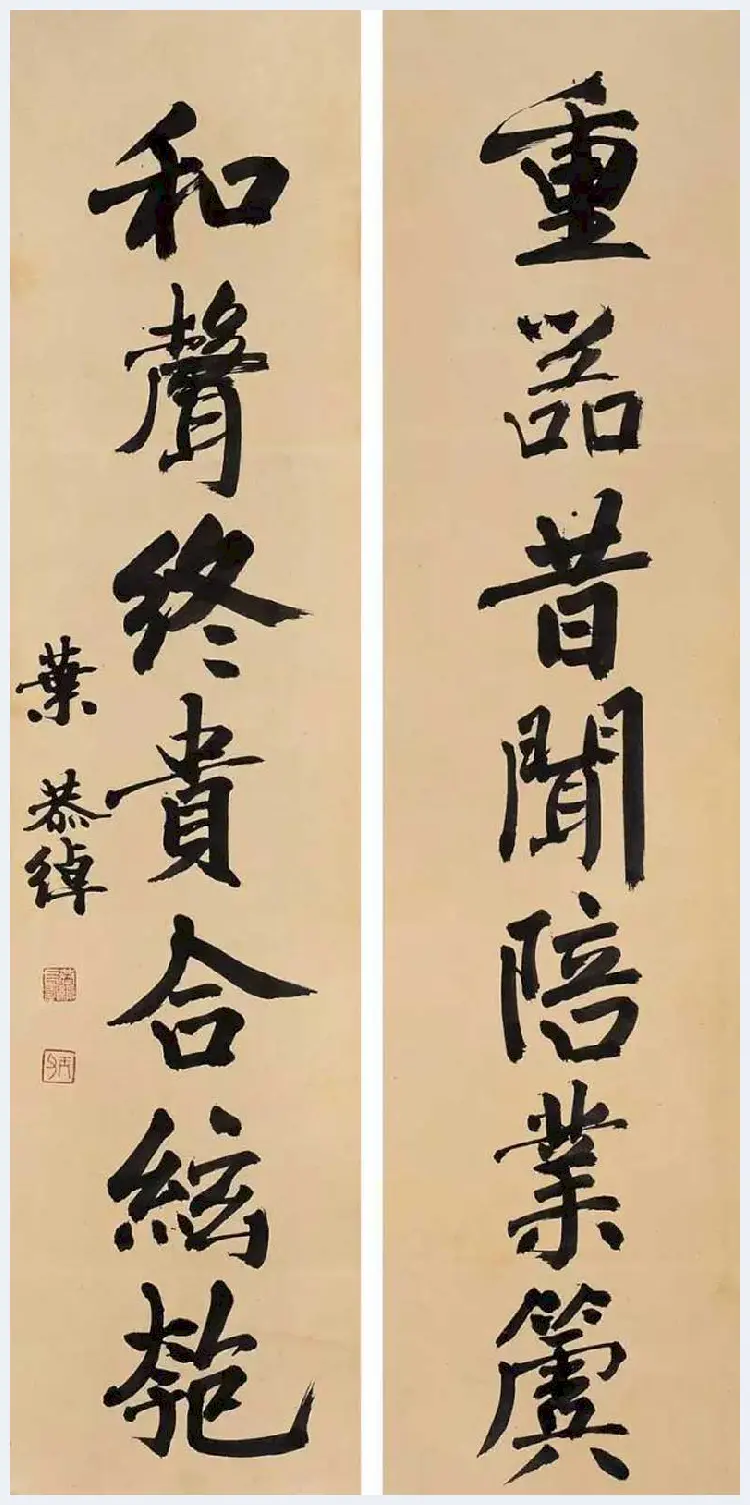 重器昔聞陪業簴
和聲終貴合絃匏
葉恭綽